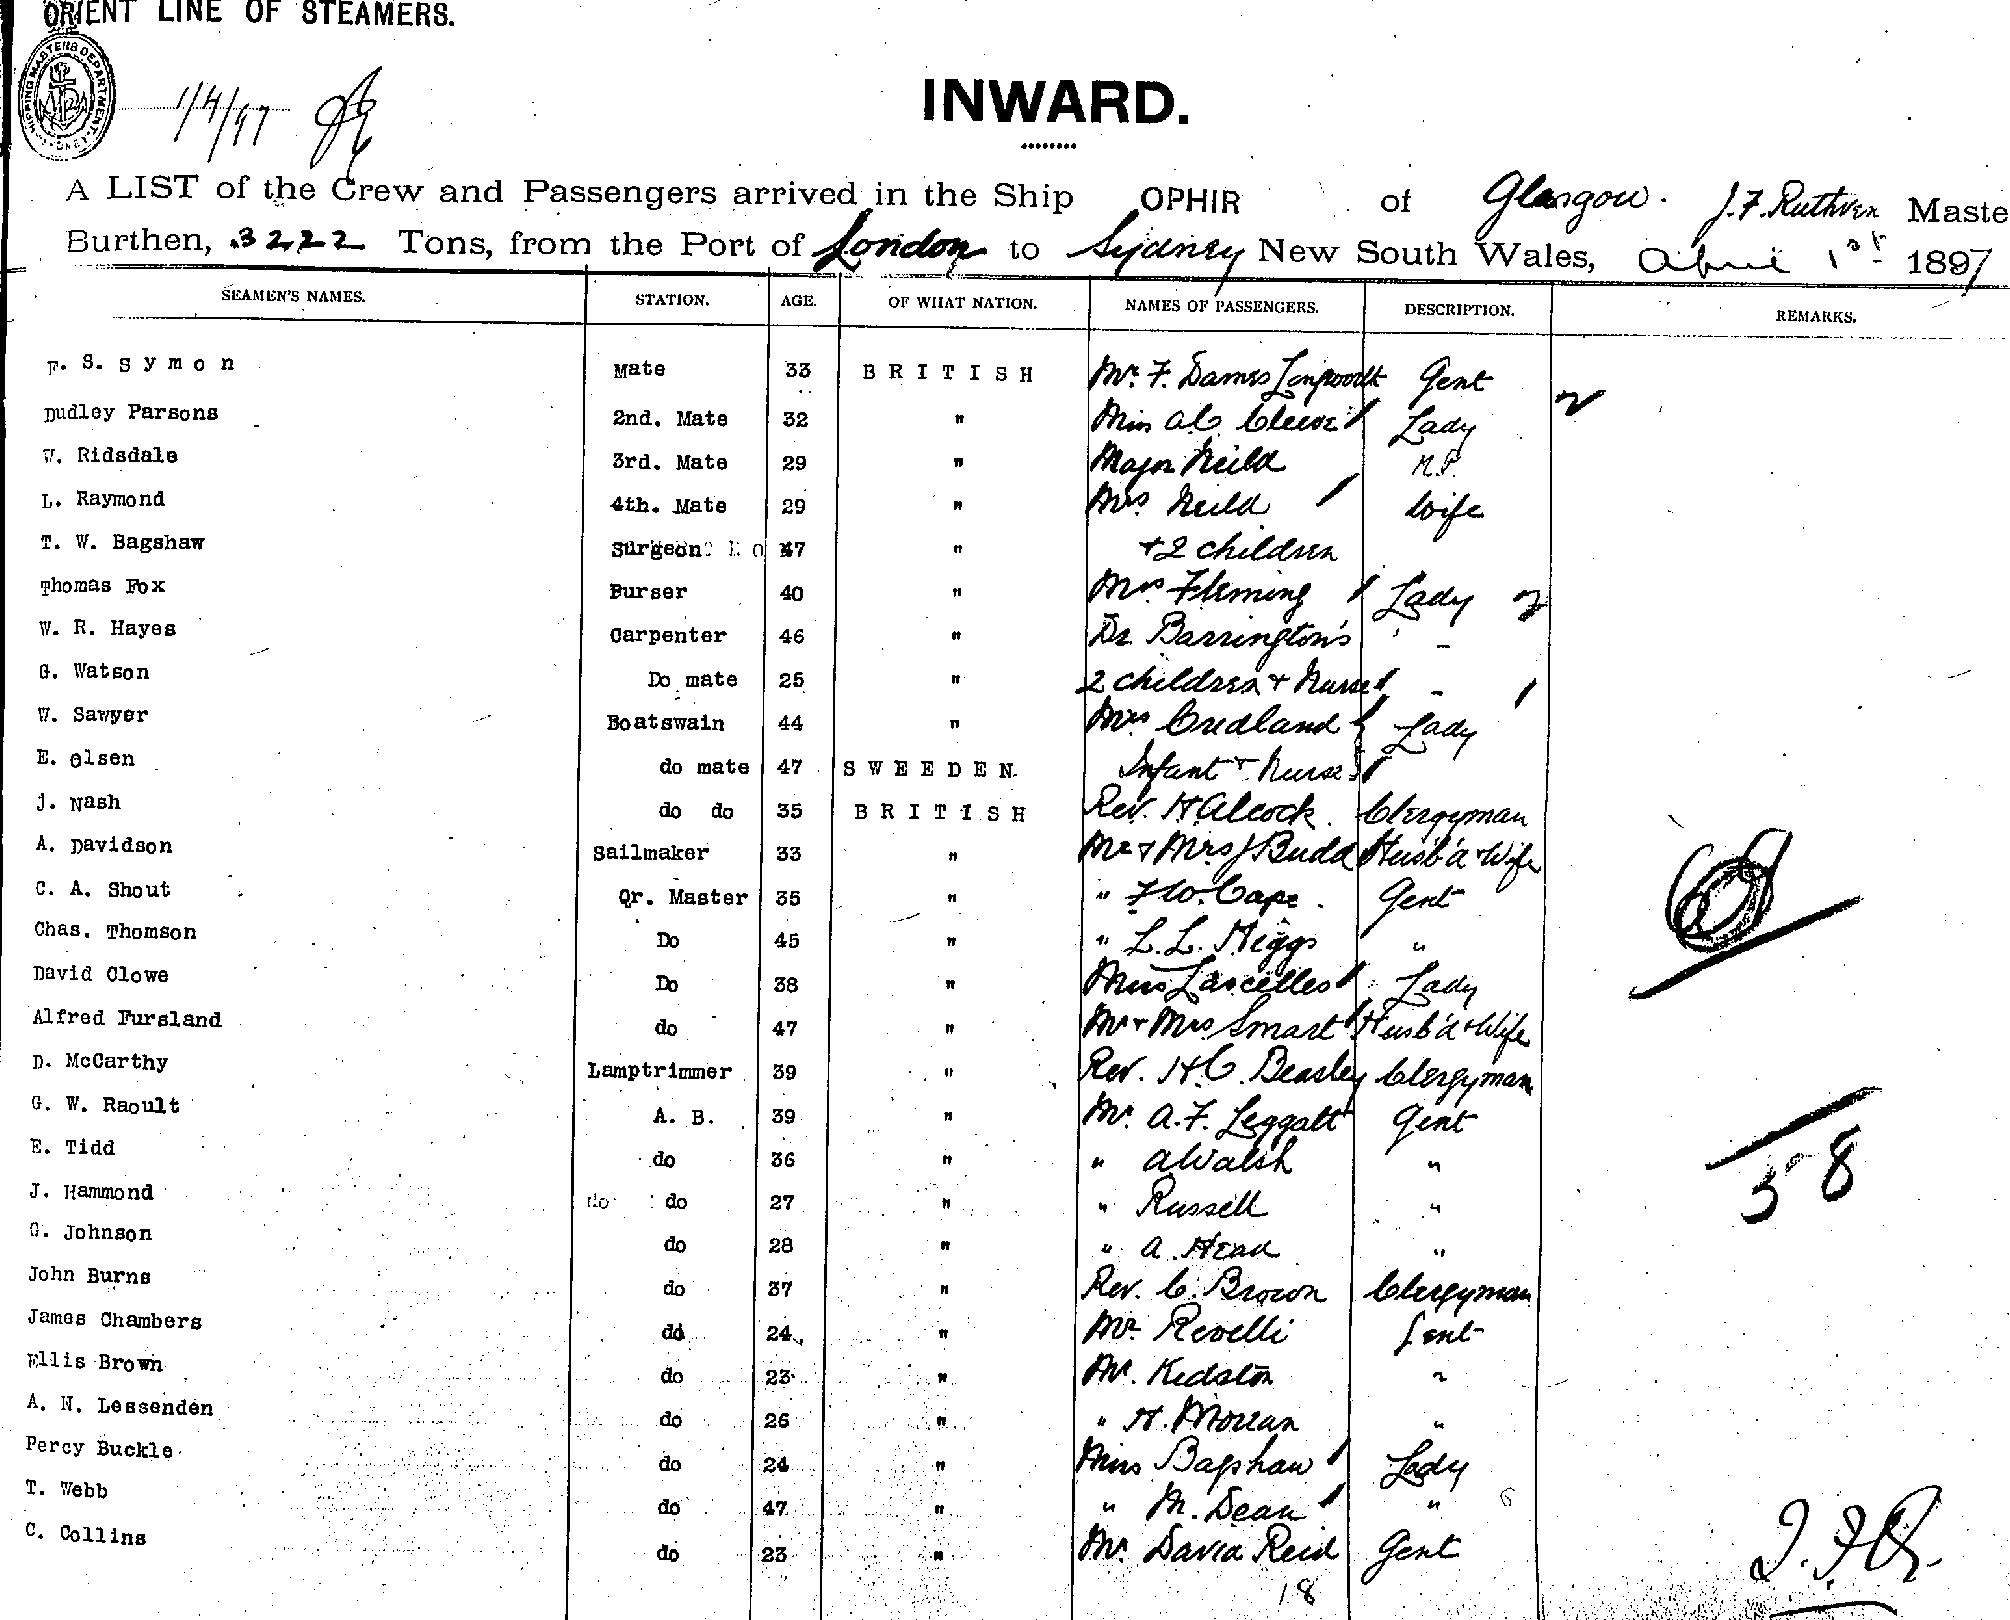 ORIENT LINE OF STEAMERS.
1/4/97
INWARD.
A LIST of the Crew and Passengers arrived in the Ship OPHIR of Glasgow. J. F. Ruthven Maste
Burthen, 3222 Tons, from the Port of London to Sydney New South Wales, April 1st 1897
SEAMEN'S NAMES. STATION. AGE. OF WHAT NATION. NAMES OF PASSENGERS. DESCRIPTION. REMARKS.
F. S. Symon Mate 33 BRITISH Mr. F. Dames Longworth Gent
Dudley Parsons 2nd. Mate 32 " Miss Lady
W. Ridsdale 3rd. Mate 29 " Major Neild M.P.
L. Raymond 4th. Mate 29 " Mrs Neild Wife
T. W. Bagshaw Surgeon 47 " +2 children
Thomas Fox Burser 40 " Mrs Fleming Lady
W. R. Hayes Carpenter 46 " Dr Barrington's -
G. Watson Do mate 25 " 2 children + Nurse -
W. Sawyer Boatswain 44 " Mrs Credland Lady
E. Olsen do mate 47 SWEEDEN. Infant + Nurse
J. Nash do do 35 BRITISH Rev. H Alcock. Clergyman
A. Davidson Sailmaker 33 " Mr + Mrs J Budd Husb'd + Wife
C. A. Shout Qr. Master 35 " " F W. Cape. Gent
Chas. Thomson Do 45 " " L. L. Higgs "
David Clowe Do 38 " Miss Lascelles Lady
Alfred Fursland do 47 " Mr + Mrs Smart Husb'd + Wife
D. McCarthy Lamptrimmer 39 " Rev. H C. Beasley Clergyman
G. W. Raoult A. B. 39 " Mr. A. F. Leggatt Gent
E. Tidd do 36 " " A Walsh "
58
J. Hammond do do 27 " " Russell "
G. Johnson do 28 " " A. Head "
John Burns do 37 " Rev. C. Brown Clergyman
James Chambers dd 24 " Mr. Revelli Gent
Ellis Brown do 23 " Mr. Kidston "
A. N. Lessenden do 26 " " H. "
Percy Buckle do 24 " Miss Bagshaw Lady
T. Webb do 47 " " M. Dean "
C. Collins do 23 " Mr. David Reid Gent
18